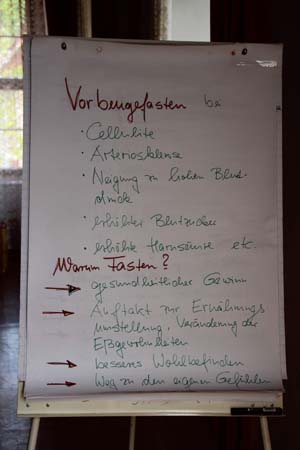 Vorbeugefasten bei
· Cellulite
· Arteriosklerose
· Neigung zu hohen Blut-
druck
· erhöhter Blutzucker
· erhöhte Harnsäure etc.
Warum Fasten?
→ gesundheitlicher Gewinn
→ Auftakt zur Ernährungs
umstellung, Veränderung der
Eßgewohnheiten
→ besseres Wohlbefinden
→ Weg zu den eigenen Gefühlen